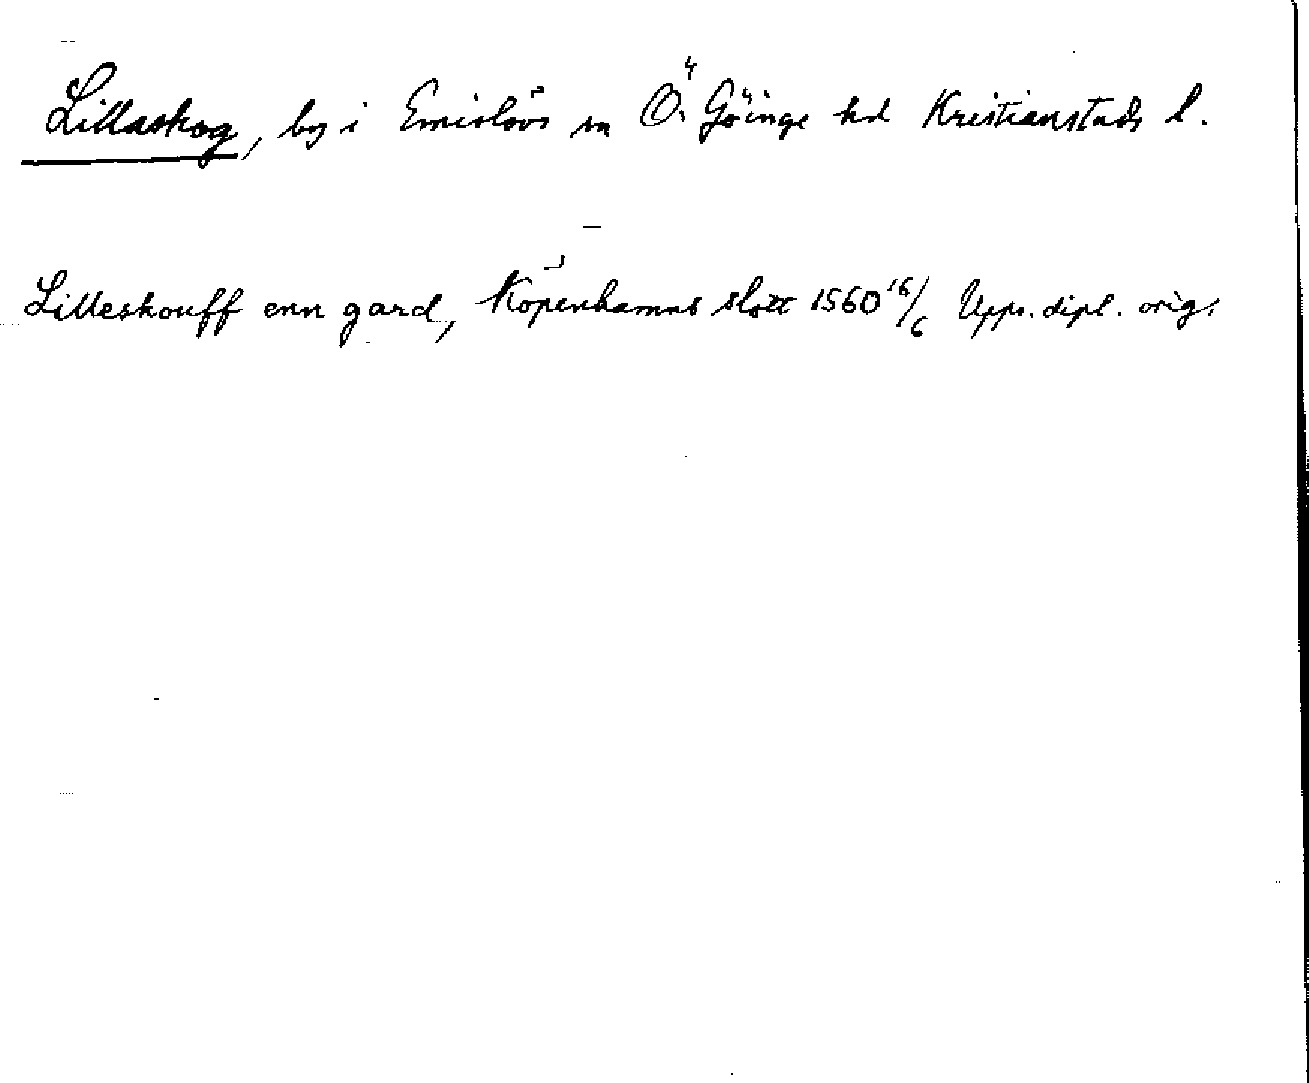 Lillaskog, by i Emislövs sn Ö. Göinge hd Kristianstads l.
Lilleskouff enn gard, Köpenhamns slott 1560 16/6 Upps. dipl. orig.